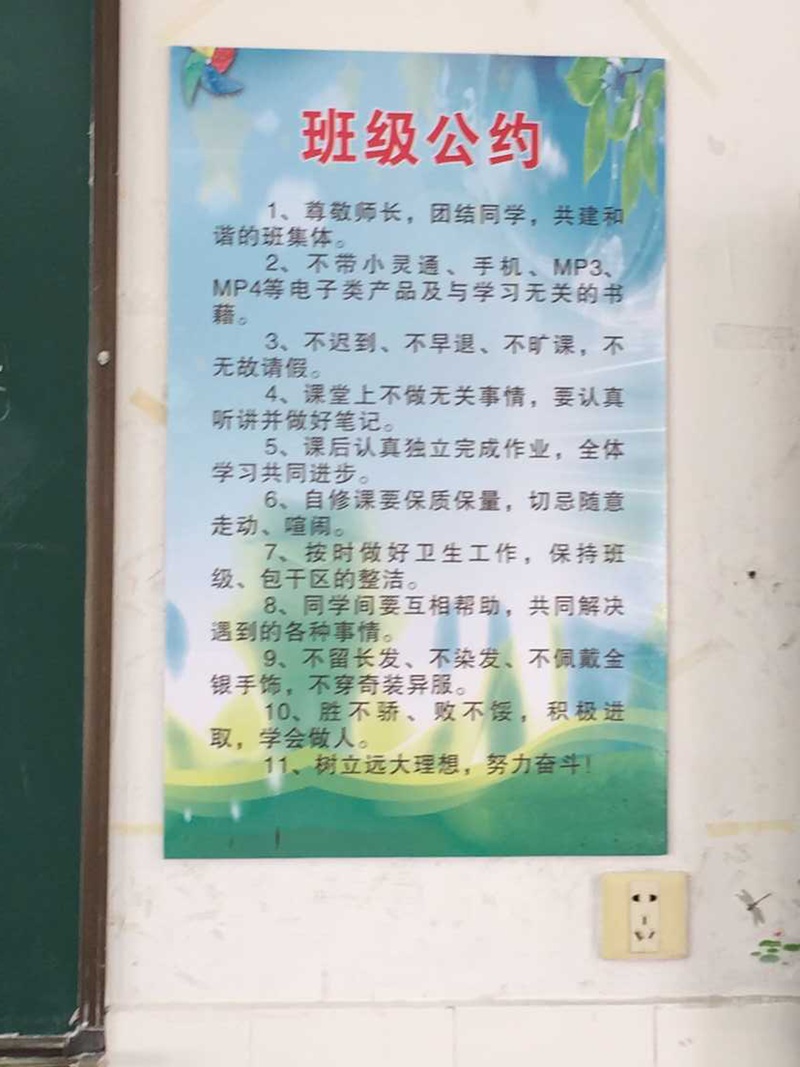 班级公约
1、尊敬师长，团结同学，共建和
谐的班集体。
2、不带小灵通、手机、MP3、
MP4等电子类产品及与学习无关的书
籍。
3、不迟到、不早退、不旷课，不
无故请假。
4、课堂上不做无关事情，要认真
听讲并做好笔记。
5、课后认真独立完成作业，全体
学习共同进步。
6、自修课要保质保量，切忌随意
走动、喧闹。
7、按时做好卫生工作，保持班
级、包干区的整洁。
8、同学间要互相帮助，共同解决
遇到的各种事情。
9、不留长发、不染发、不佩戴金
银手饰，不穿奇装异服。
10、胜不骄、败不馁，积极进
取，学会做人。
11、树立远大理想，努力奋斗！